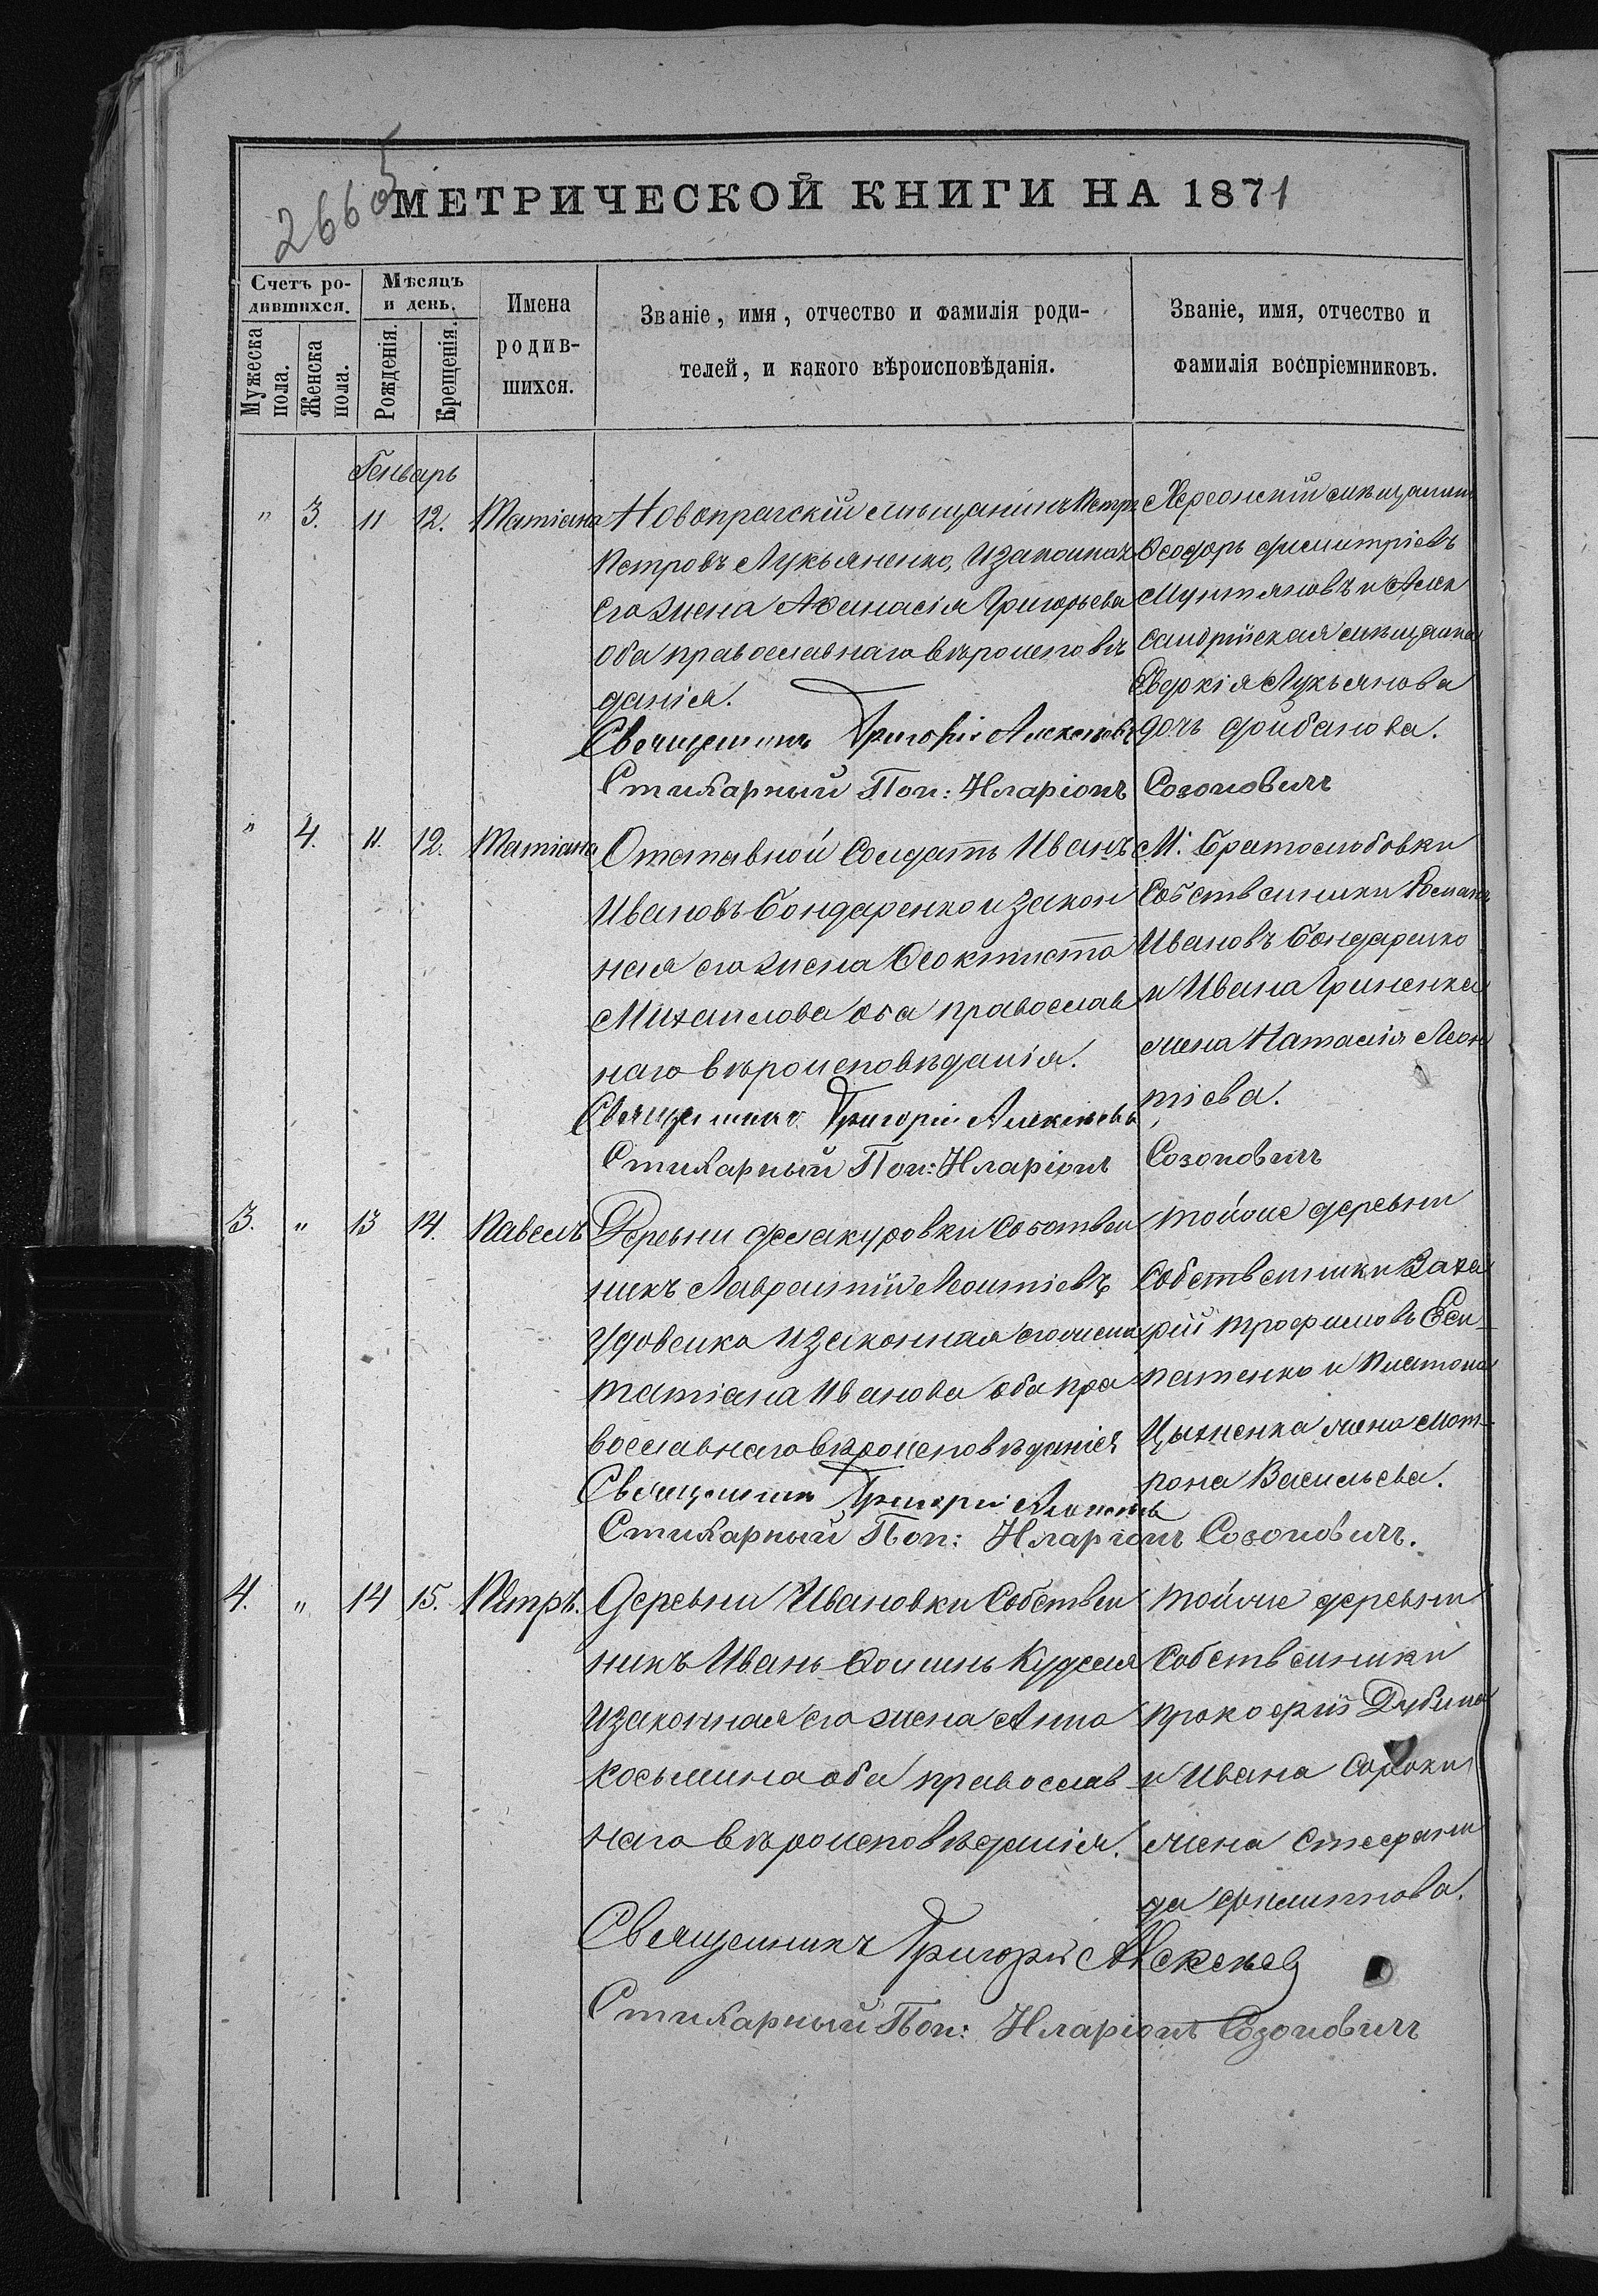 2665
МЕТРИЧЕСКОЙ КНИГИ НА 1871
Счетъ ро-
дившихся.
Мужеска
пола.
Женска
пола.
Мѣсяцъ
и день.
Рожденія.
Крещенія.
Имена
родив-
шихся.
Званіе, имя, отчество и фамилія роди-
телей, и какого вѣроисповѣданія.
Званіе, имя, отчество и
фамилія воспріемниковъ.
Генварь
" 3. 11 12. Татіана
Новопрагскій мѣщанинъ Петръ
Петровъ Лукьяненко, и законная
его жена Афанасія Григорьева
оба православнаго вѣроисповѣ
данія.
Священникъ Григорій Алексѣевъ
Стихарный Пон: Иларіонъ Созоновичъ
Херсонскій мѣщанинъ
Ѳеодоръ Филиітріевъ
Мунтяновъ и Алек
сандрійская мѣщанка
Евдокія Лукьянова
дочь Фрибанова.
" 4. 11. 12. Татіана
Отставной Солдатъ Иванъ
Ивановъ Бондаренко и закон
ная его жена Ѳеоктиста
Михаилова оба православ
наго вѣроисповѣданія.
Священникъ Григорій Алексѣевъ
Стихарный Пон: Иларіонъ Созоновичъ
М. Братолюбовки
Собственники Романъ
Ивановъ Бондаренко
и Ивана Гриненка
жена Наталія Леон
тіева.
3. " 13 14. Павелъ
Деревни Федакуровки Собствен
никъ Лаврентій Леонтіевъ
Удовенко и законная его жена
Татіана Иванова оба пра
вославнаго вѣроисповѣданія
Священникъ Григорій Алексѣевъ
Стихарный Пон: Иларіонъ Созоновичъ.
Той же деревни
Собственники Заха
рій Трофимовъ Еси-
патенко и Платона
Цыхненка жена Мот-
рона Васильева.
4. " 14 15. Петръ.
Деревни Ивановки Собствен
никъ Иванъ Фоминъ Куделя
и законная его жена Анна
Косьмина оба православ
наго вѣроисповѣданія.
Священникъ Григорій Алексѣевъ
Стихарный Пон: Иларіонъ Созоновичъ
Той же деревни
Собственники
Прокофій Дубина
и Ивана Сороки
жена Стефани
да Филиппова.